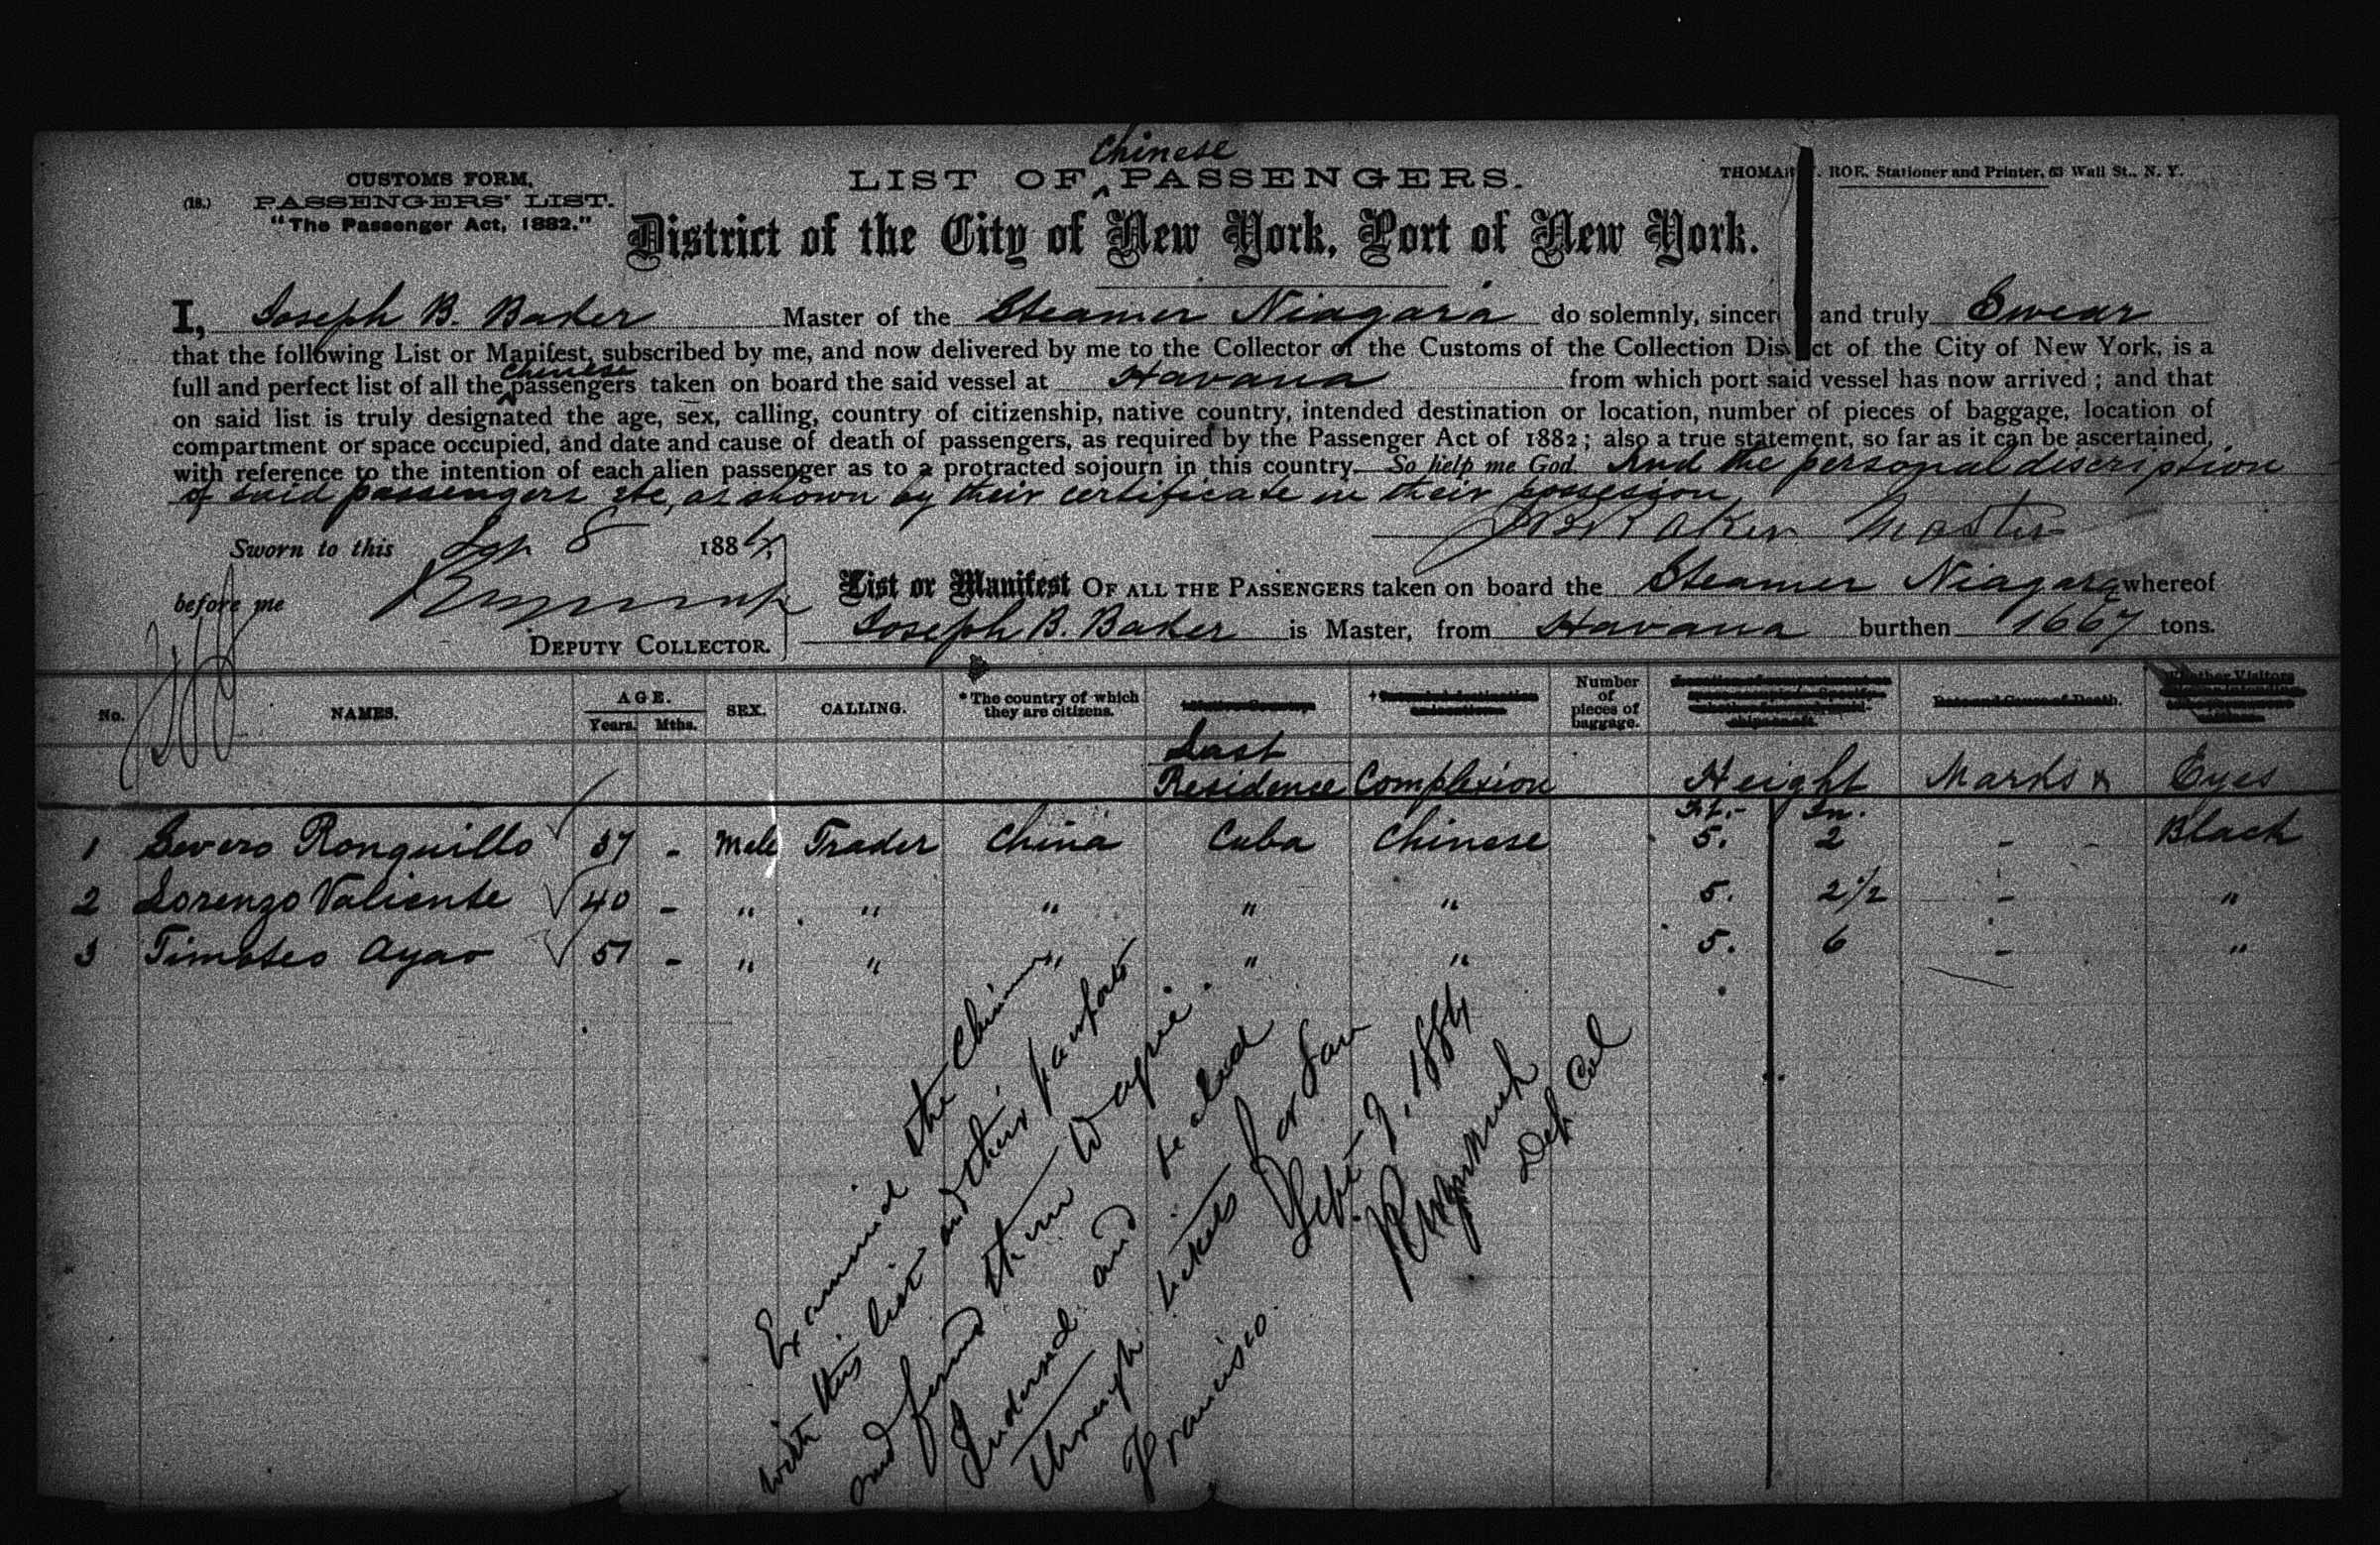 Chinese
CUSTOMS FORM.
LIST OF ^ PASSENGERS.
THOMAS ROE, Stationer and Printer, 63 Wall St., N. Y.
(18.) PASSENGERS' LIST.
"The Passenger Act, 1882."
District of the City of New York, Port of New York.
I, Joseph B. Baker Master of the Steamer Niagara do solemnly, sincer and truly Swear
that the following List or Manifest, subscribed by me, and now delivered by me to the Collector of the Customs of the Collection Dis ct of the City of New York, is a
Chinese
full and perfect list of all the ^ passengers taken on board the said vessel at Havana from which port said vessel has now arrived; and that
on said list is truly designated the age, sex, calling, country of citizenship, native country, intended destination or location, number of pieces of baggage, location of
compartment or space occupied, and date and cause of death of passengers, as required by the Passenger Act of 1882; also a true statement, so far as it can be ascertained,
with reference to the intention of each alien passenger as to a protracted sojourn in this country. So help me God. And the personal discription
of said passengers etc, as shown by their certificate in their possession
J B Baker Master
Sworn to this 8 1884
before me
DEPUTY COLLECTOR.
List or Manifest OF ALL THE PASSENGERS taken on board the Steamer Niagara whereof
Joseph B. Baker is Master, from Havana burthen 1667 tons.
No. NAMES. AGE. Years. Mths. SEX. CALLING. *The country of which they are citizens. Number of pieces of baggage.
Last Residence Complexion Height Marks & Eyes
Ft. In.
1 Severo Ronquillo 37 - Male Trader China Cuba Chinese 5. 2 - Black
2 Lorenzo Valiente 40 - " " " " " 5. 2 1/2 - "
3 Timoteo Ayao 51 - " " " " " 5. 6 - "
Examined the Chinese
with this list and their passports
and find them to agree.
Indorsed and sealed
through tickets for San
Francisco.
Feb. 9, 1884
Dep Col